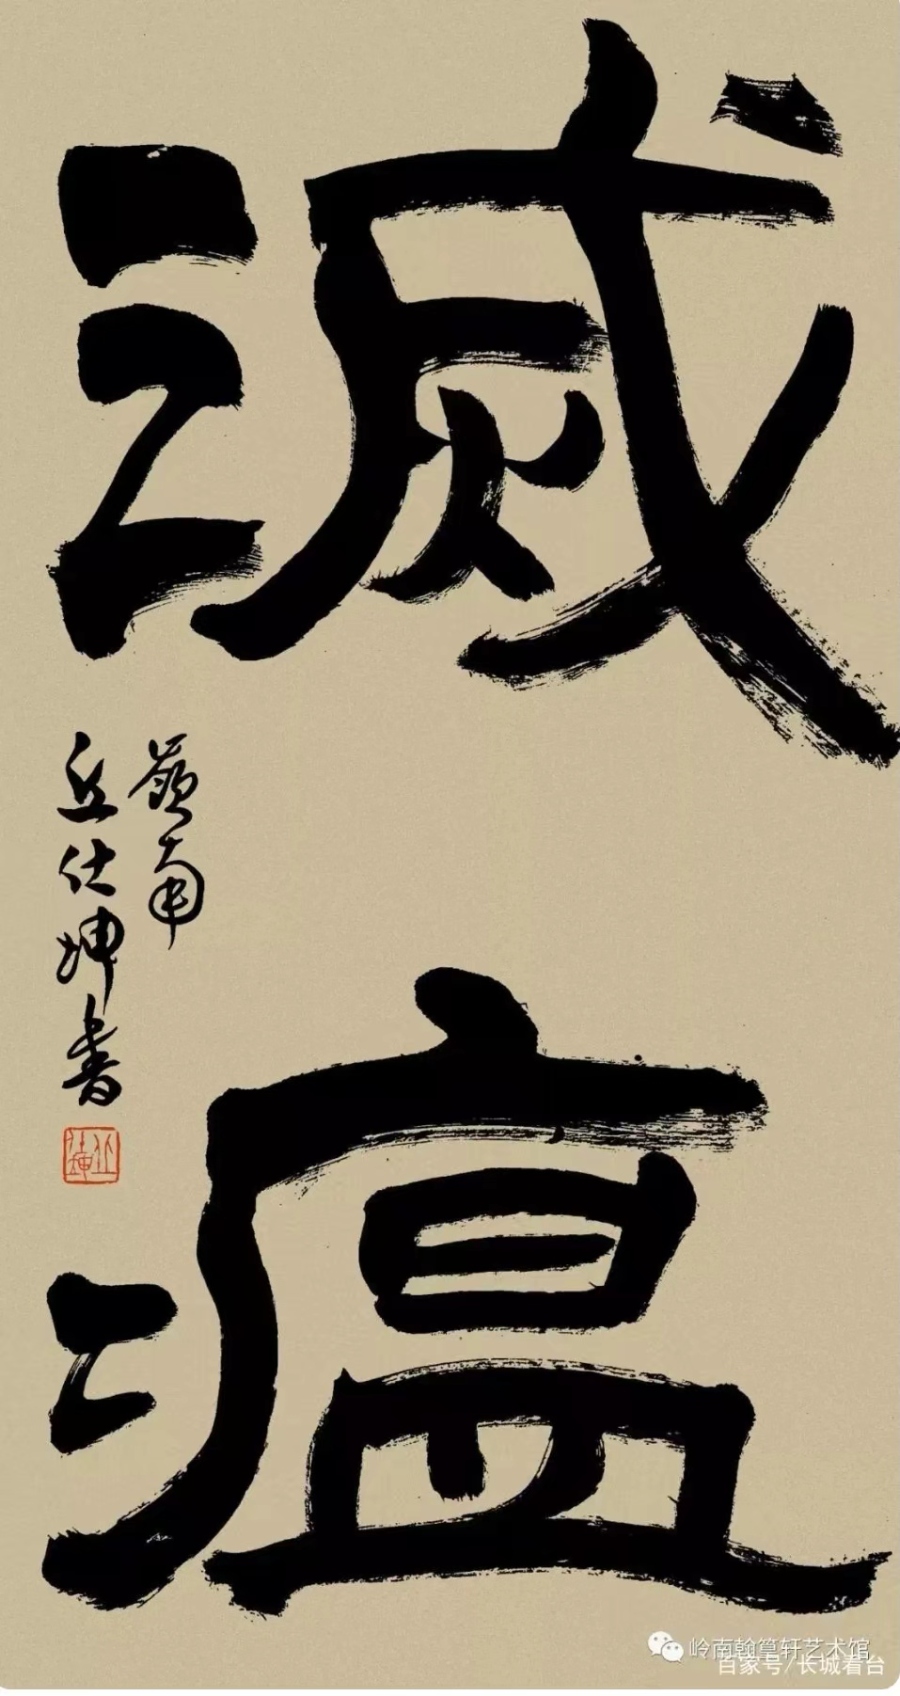 滅
瘟
嶺南
丘仕坤書
岭南翰篁轩艺术馆
百家号/长城看台